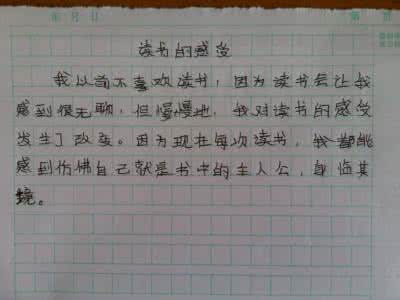 年 月 日
第 页
读书的感受
我以前不喜欢读书，因为读书会让我
感到很无聊，但慢慢地，我对读书的感受
发生了改变。因为现在每次读书，我都能
感到仿佛自己就是书中的主人公，身临其
境。